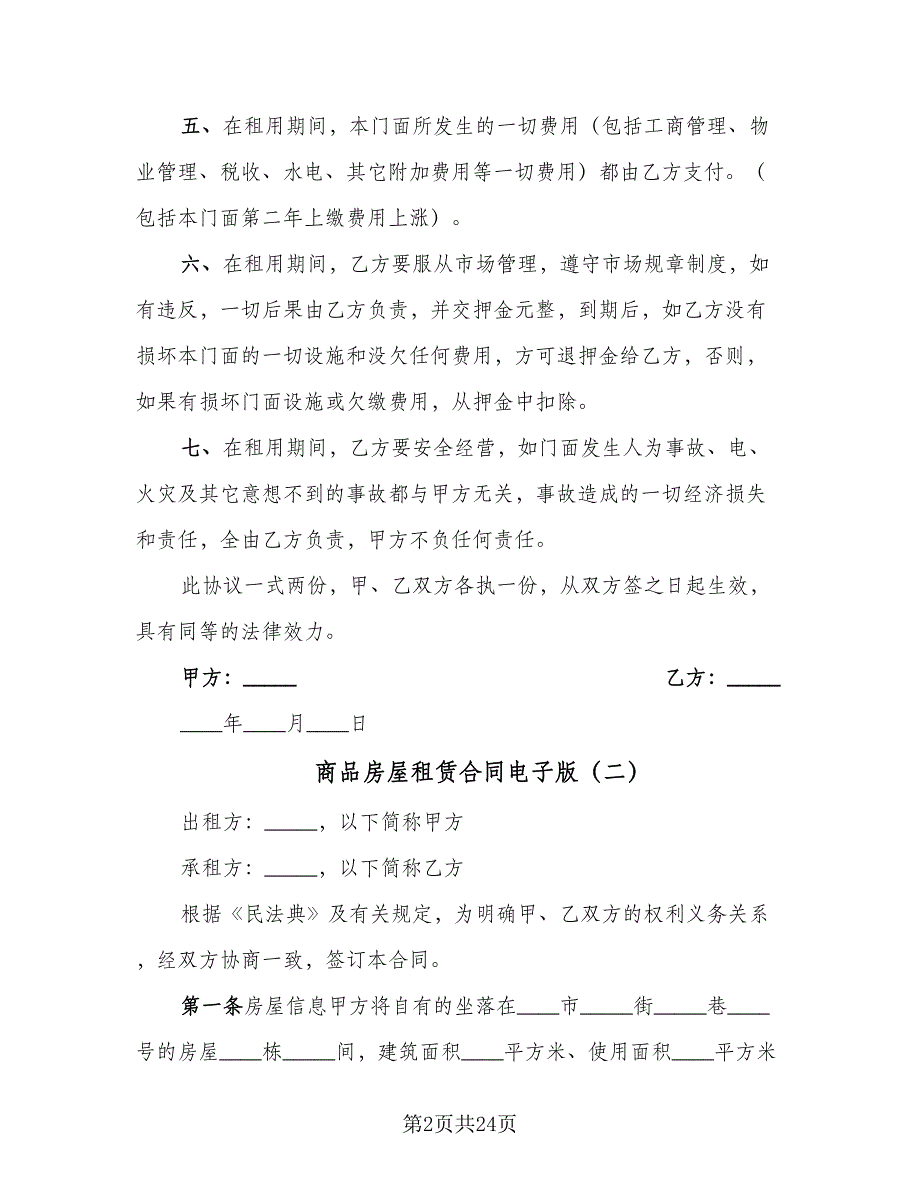 五、在租用期间，本门面所发生的一切费用（包括工商管理、物
业管理、税收、水电、其它附加费用等一切费用）都由乙方支付。（
包括本门面第二年上缴费用上涨）。
六、在租用期间，乙方要服从市场管理，遵守市场规章制度，如
有违反，一切后果由乙方负责，并交押金元整，到期后，如乙方没有
损坏本门面的一切设施和没欠任何费用，方可退押金给乙方，否则，
如果有损坏门面设施或欠缴费用，从押金中扣除。
七、在租用期间，乙方要安全经营，如门面发生人为事故、电、
火灾及其它意想不到的事故都与甲方无关，事故造成的一切经济损失
和责任，全由乙方负责，甲方不负任何责任。
此协议一式两份，甲、乙双方各执一份，从双方签之日起生效，
具有同等的法律效力。
甲方：_____ 乙方：_____
____年____月____日
商品房屋租赁合同电子版（二）
出租方：_____，以下简称甲方
承租方：_____，以下简称乙方
根据《民法典》及有关规定，为明确甲、乙双方的权利义务关系
，经双方协商一致，签订本合同。
第一条房屋信息甲方将自有的坐落在____市_____街_____巷____
号的房屋____栋_____间，建筑面积____平方米、使用面积____平方米
第2页共24页